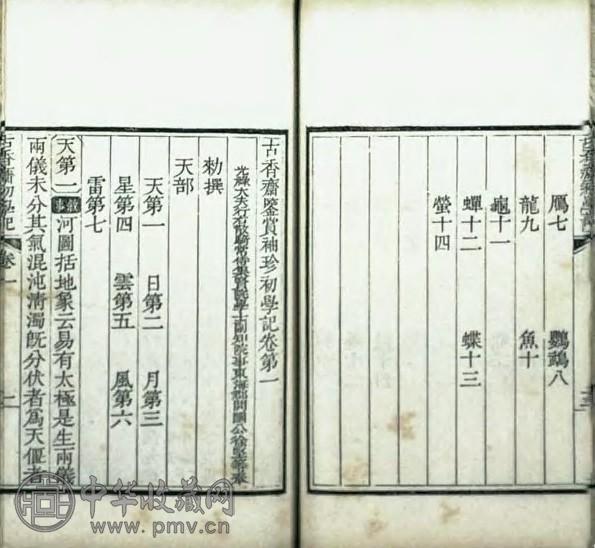 鴈七　鸚鵡八
龍九　魚十
龜十一
蟬十二　蝶十三
螢十四
古香齋鑒賞袖珍初學記卷第一
光祿大夫行右散騎常侍集賢院學士副知院事東海郡開國公徐堅等奉
勑撰
天部
天第一　日第二　月第三
星第四　雲第五　風第六
雷第七
天第一 敘事 河圖括地象云易有太極是生兩儀
兩儀未分其氣混沌清濁旣分伏者爲天偃者
古香齋初學記　卷一　一
中华收藏网
www.pmv.cn